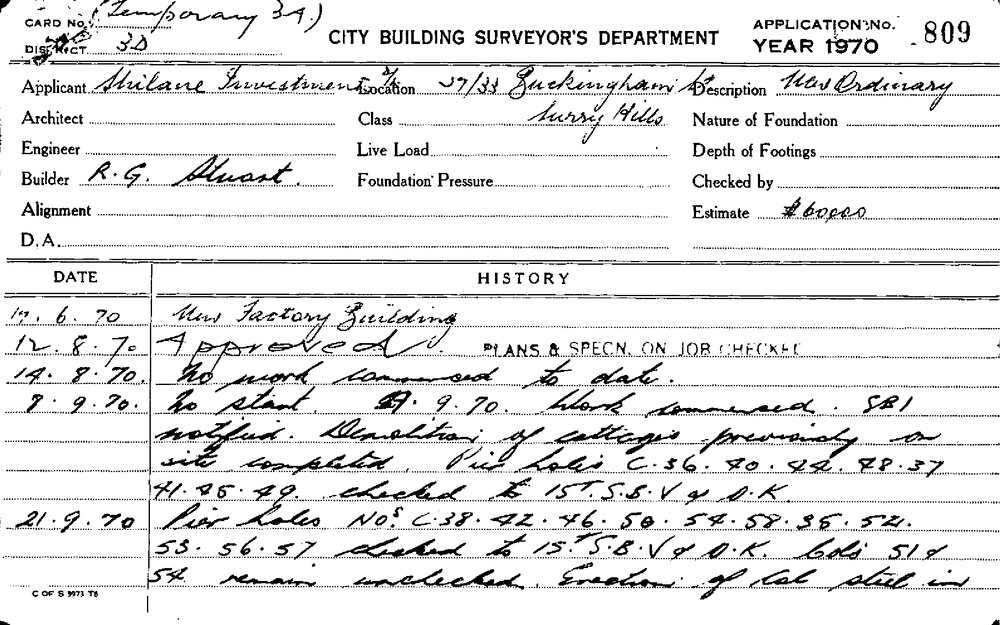 (Temporary 3A)
CARD No.
DISTRICT 3D
CITY BUILDING SURVEYOR'S DEPARTMENT
APPLICATION No. 809
YEAR 1970
Applicant Shilane Investment Location 27/33 Buckingham St Description New Ordinary
Architect Class Surry Hills Nature of Foundation
Engineer Live Load Depth of Footings
Builder R. G. Stuart. Foundation Pressure Checked by
Alignment Estimate $60000
D.A.
DATE HISTORY
17. 6. 70 New Factory Building
12. 8. 70 Approved. PLANS & SPECN. ON JOB CHECKED
14. 8. 70. No work commenced to date.
8. 9. 70. No start. 9. 70. Work commenced. SBI
notified. Demolition of cottages previously on
site completed. Pier holes C. 36. 40. 44. 48. 37
41. 45. 49. checked to 15T. S.B.V & O.K.
21. 9. 70 Pier holes Nos. C. 38. 42. 46. 50. 54. 58. 35. 52.
53. 56. 57 checked to 15T S.B.V & O.K. Cols 51 &
54 remain unchecked. Erection of Col steel in
C OF S 9973 T6